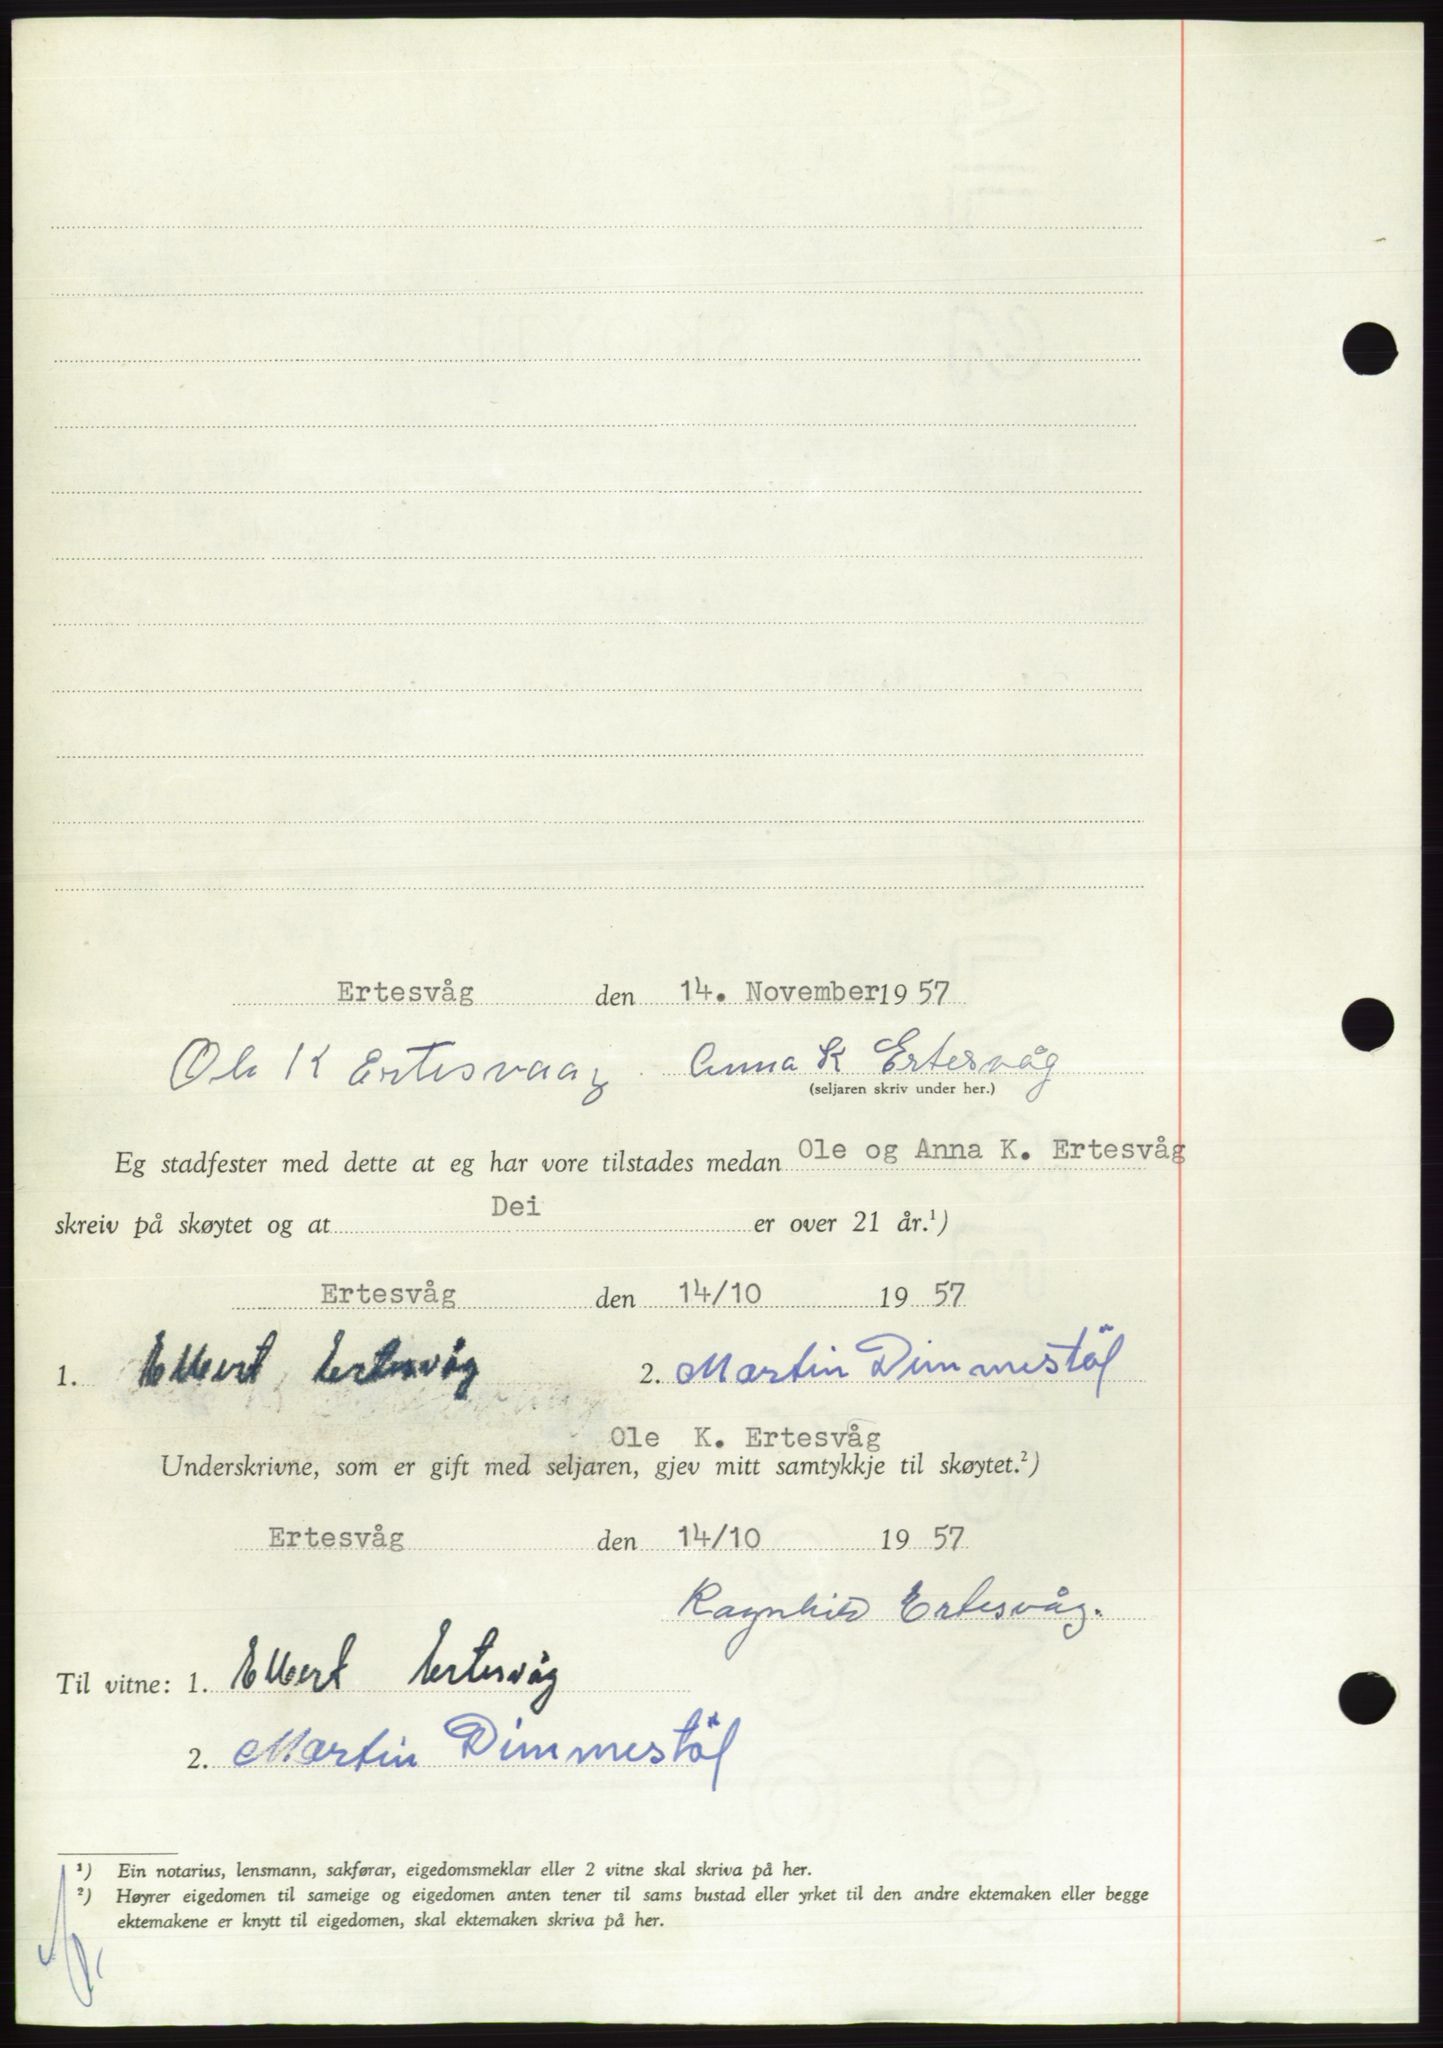 Ertesvåg den 14. November 1957
Ole K Ertesvaag Anna K Ertesvåg
(seljaren skriv under her.)
Eg stadfester med dette at eg har vore tilstades medan Ole og Anna K. Ertesvåg
skreiv på skøytet og at Dei er over 21 år.¹)
Ertesvåg den 14/10 1957
1. Elbert Ertesvåg 2. Martin Dimmestöl
Ole K. Ertesvåg
Underskrivne, som er gift med seljaren, gjev mitt samtykkje til skøytet.²)
Ertesvåg den 14/10 1957
Ragnhild Ertesvåg.
Til vitne: 1. Elbert Ertesvåg
2. Martin Dimmestöl
¹) Ein notarius, lensmann, sakførar, eigedomsmeklar eller 2 vitne skal skriva på her.
²) Høyrer eigedomen til sameige og eigedomen anten tener til sams bustad eller yrket til den andre ektemaken eller begge
ektemakene er knytt til eigedomen, skal ektemaken skriva på her.